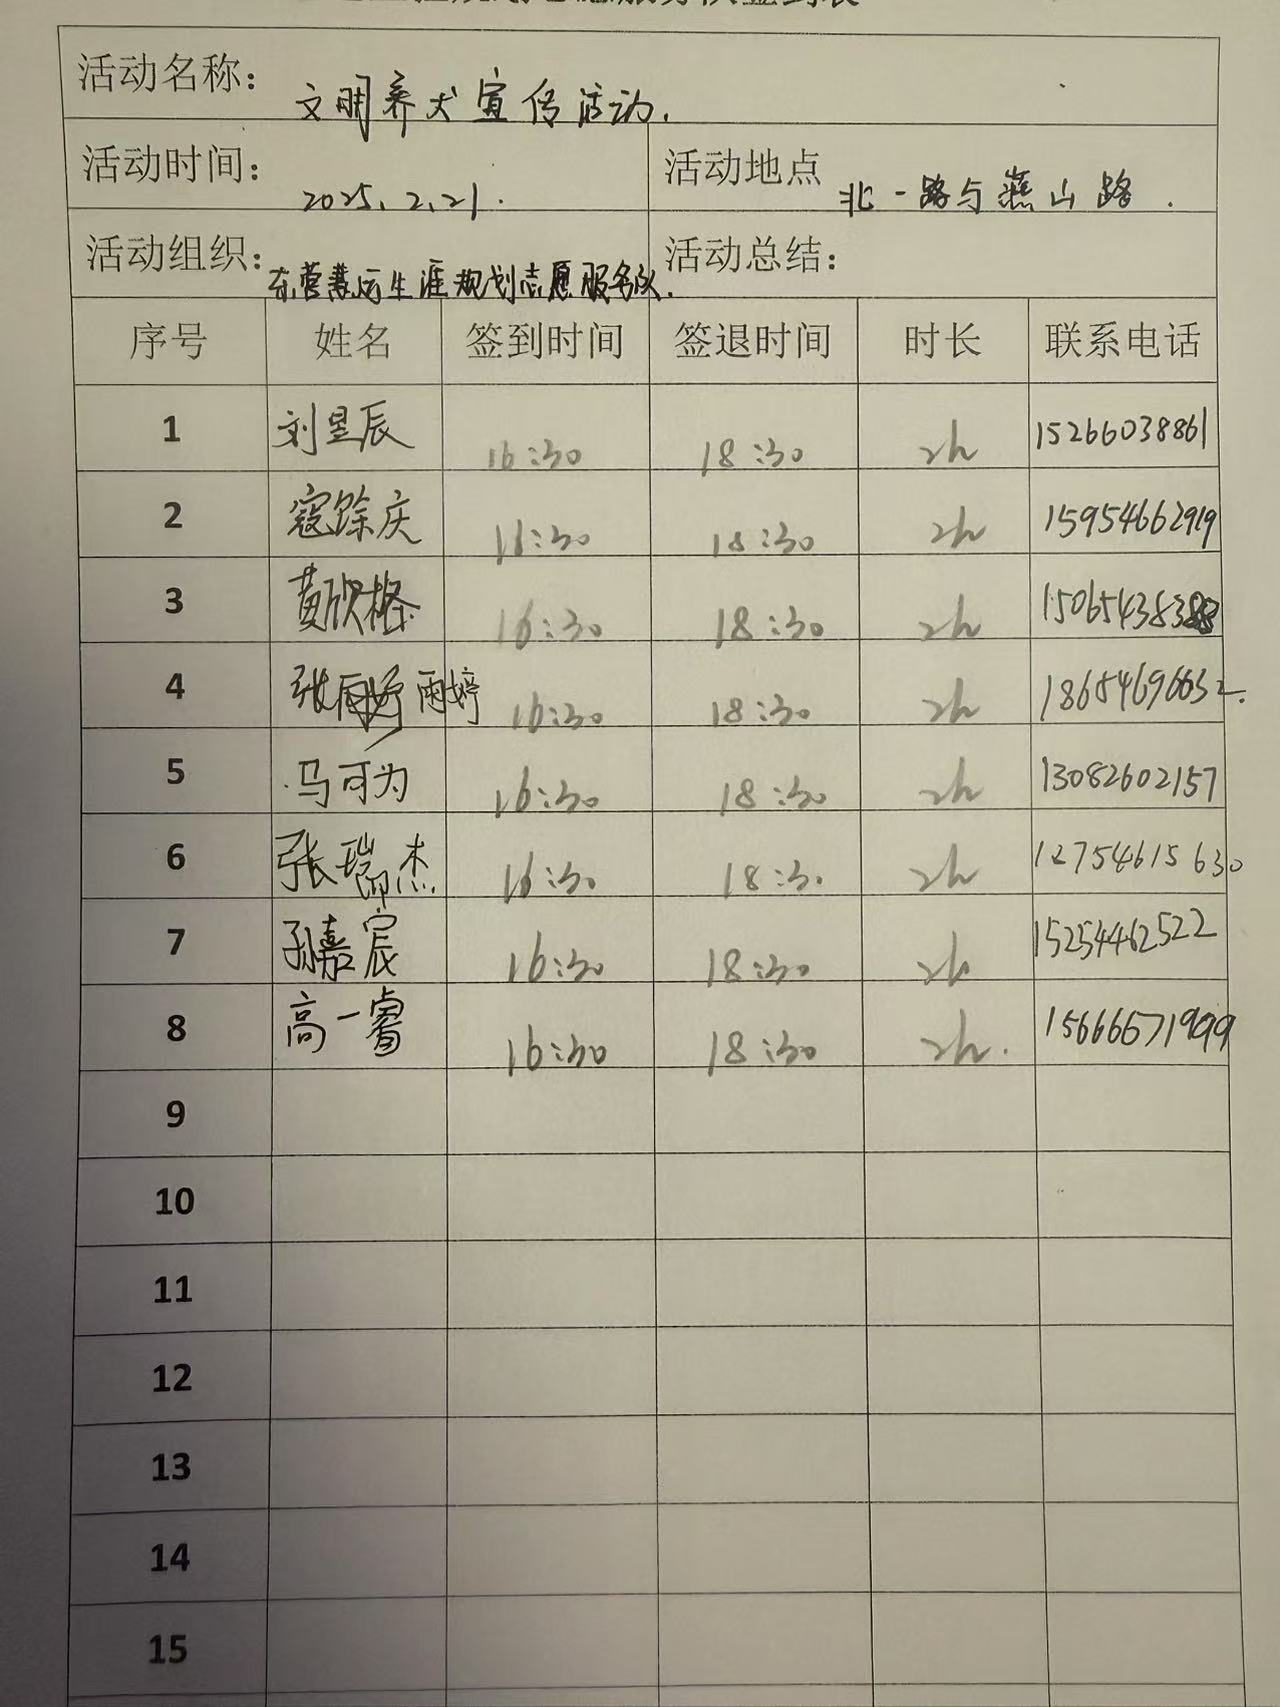 服务队签到表
活动名称： 文明养犬宣传活动.
活动时间： 2025.2.21. 活动地点 北一路与燕山路.
活动组织： 东营慧运生涯规划志愿服务队. 活动总结：
序号 姓名 签到时间 签退时间 时长 联系电话
1 刘昱辰 16:30 18:30 2h 15266038861
2 寇馀庆 16:30 18:30 2h 15954662919
3 黄欣格 16:30 18:30 2h
4 张雨婷 16:30 18:30 2h 18654696632.
5 马可为 16:30 18:30 2h 13082602157
6 张瑞杰 16:30 18:30 2h 12754615630
7 孙嘉宸 16:30 18:30 2h 15254462522
8 高一睿 16:30 18:30 2h. 15666671999
9
10
11
12
13
14
15